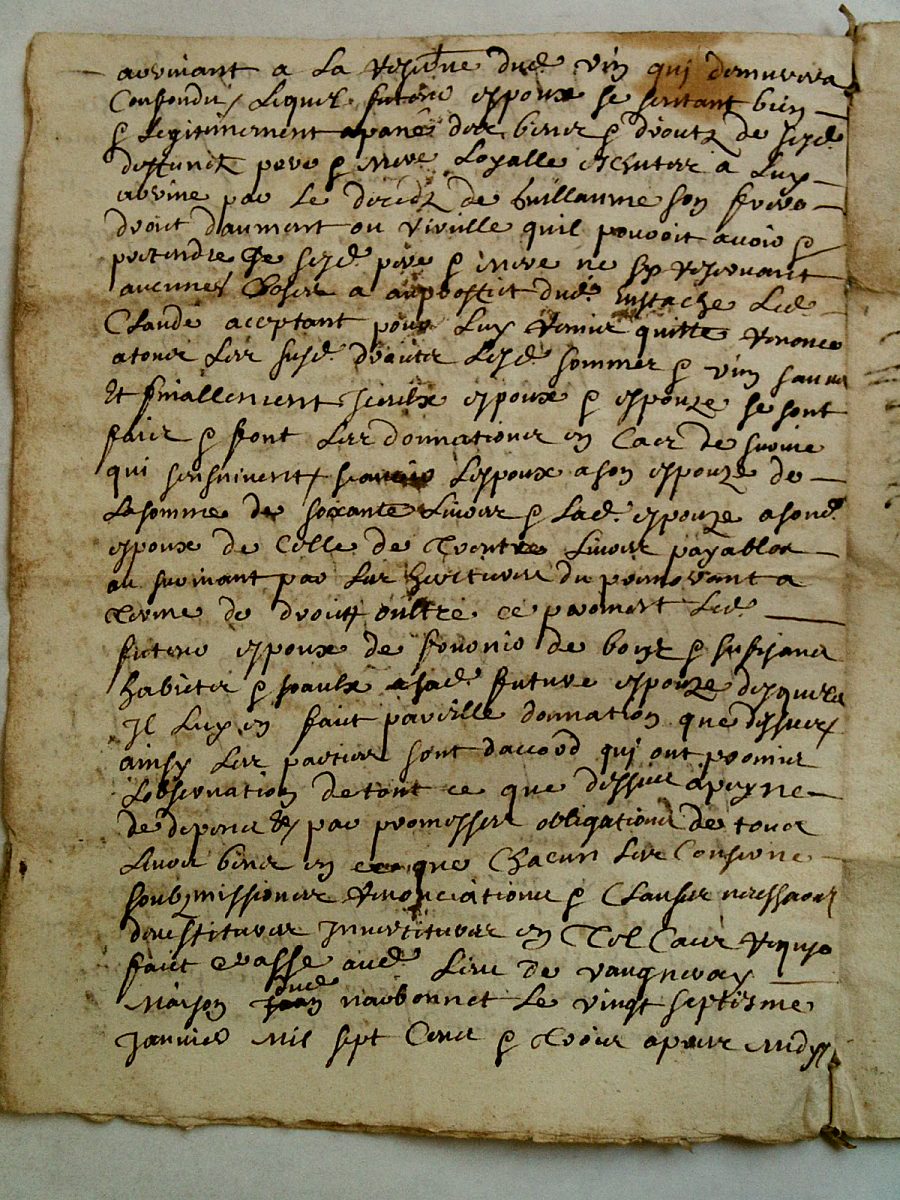 advinant a La reserve dud. vin qui demurera
Confondu, Lequel futeur espoux se sentant bien
& Legitimement apané des biens & droitz de sesd.
deffunctz pere & mere Loyalle escheutes a Luy
advine par Le decedz de Guillaume son frere
droict daument ou vieille quil pouvoit avoir &
pretendre de sesd. pere & mere ne sy reservant
aucunes Choses a au proffict dud. Eustache Led.
Claude aceptant pour Luy remis quitte renonce
a tous Les susd. droictz Lesd. sommes & vin sauves
Et finallement iceulx espoux & espouze se sont
faict & font Les donnations en Cas de survie
qui sensuivent, scavoir Lespoux a son espouze de
La somme de soixante Livres & Lad. espouze a sond.
espoux de Celle de Trente Livres payables
au survivant par Les heritiers du premourant a
Terme de droict oultre ce promert Led.
futeur espoux de fournir de bons & sufisans
habictz & joaulx a sad. future espouze desquels
Il Luy en faict pareille donnation que dessus,
ainsy Les parties sont daccord qui ont promis
Lobservation de tout ce que dessus a peyne
de depens &, par promesses obligations de tous
Leurs biens en ce que Chacun Les Conserne
soubzmissions renonciations & Clauses necessaires
devestitures Investitures en Tel Cas requis
faict & passé aud. Lieu de vaugneray
Maison dud. narbonnet Le vingt septiesme
Janvier Mil sept Cens & Trois apres Midy